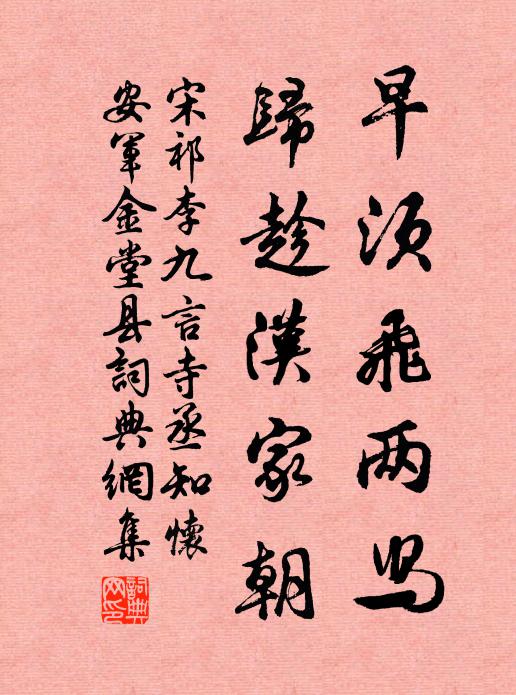 早須飛两舄
歸趁漢家朝
宋祁李九言寺丞知懷
安軍金堂县詞典網集
詞典网印